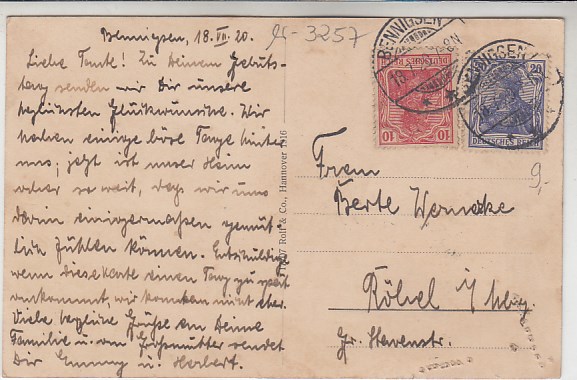 Bennigsen, 18.VII.20.
Liebe Tante! Zu Deinem Geburts-
tag senden wir Dir unsere
herzlichsten Glückwünsche. Wir
haben einige böse Tage hinter
uns; jetzt ist unser Heim
aber so weit, dass wir uns
darin einigermaßen gemüt-
lich fühlen können. Entschuldig,
wenn diese Karte einen Tag zu spät
ankommt, wir konnten nicht eher.
Viele herzliche Grüße an Deine
Familie u. von Großmutter sendet
Dir Emmy u. Herbert.
-3257
Rolf & Co., Hannover 1916
BENNIGSEN
BENNIGSEN
10 10
DEUTSCHES REICH
20
DEUTSCHES REICH
9,-
Frau
Berte Wernecke
Röbel i/ Mbg.
Gr. Stavenstr.